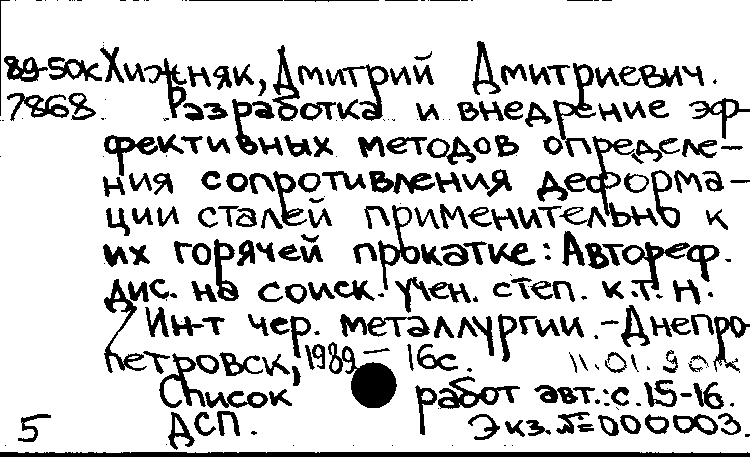 89-50к Хижняк, Дмитрий Дмитриевич.
7868 Разработка и внедрение эф-
фективных методов определе-
ния сопротивления деформа-
ции сталей применительно к
их горячей прокатке: Автореф.
дис. на соиск. учен. степ. к.т.н.
/ Ин-т чер. металлургии. - Днепро-
петровск, 1989 - 16с.
11.01.90
Список работ авт.: с. 15-16.
5 ДСП. Экз. №000003.